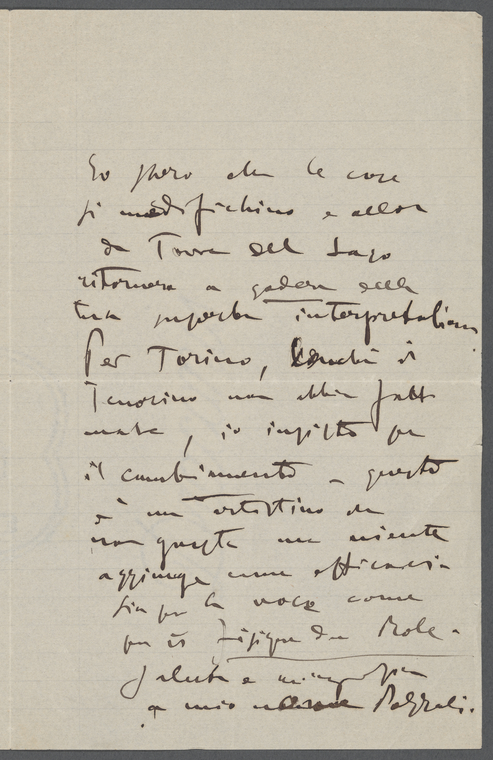 Io spero che le cose
si modifichino e allora
da Torre del Lago
ritornerò a godere della
tua superba interpretazione
Per Torino, benchè il
Tenorino non abbia fatto
male, io insisto per
il cambiamento - questo
è un artistino che
non guasta ma niente
aggiunge come efficacia
sia per la voce come
per il fisique du Role.
Saluta e ringrazia
a mio nome Polzzali.